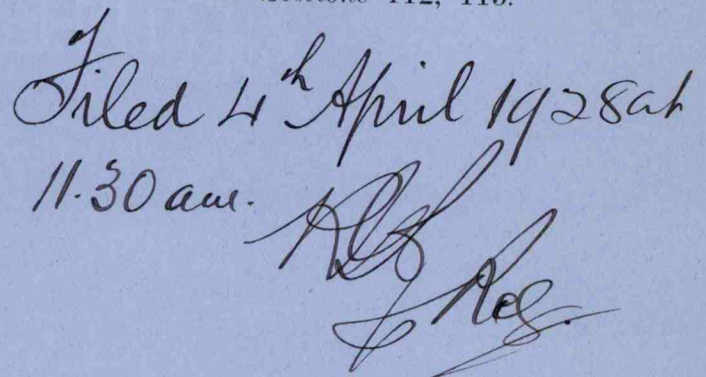 Sections 112, 113.
Filed 4th April 1928 at
11.30 am.
Reg.